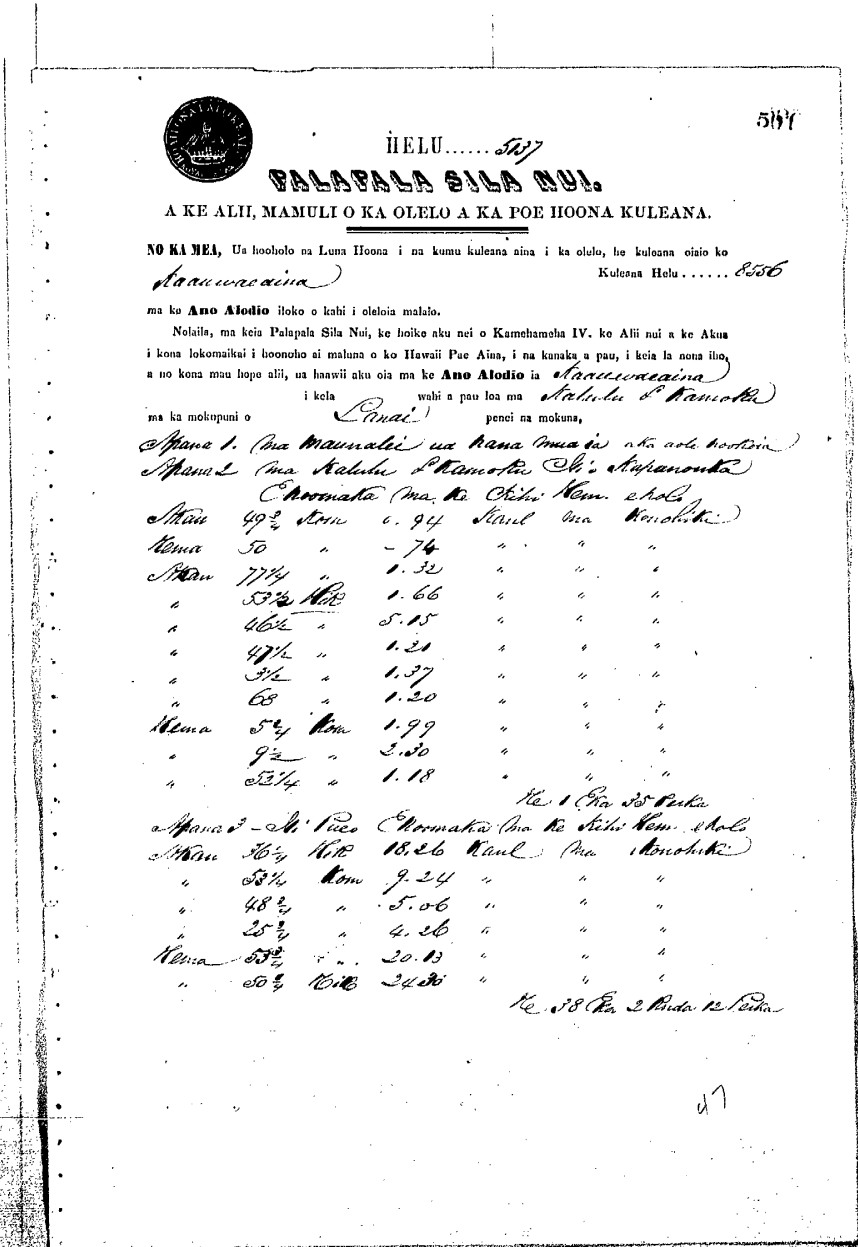 HELU...... 5137
PALAPALA SILA NUI.
A KE ALII, MAMULI O KA OLELO A KA POE HOONA KULEANA.
NO KA MEA, Ua hooholo na Luna Hoona i na kumu kuleana aina i ka olelo, he kuleana oiaio ko
Kaauwaeaina Kuleana Helu...... 8556
ma ke Ano Alodio iloko o kahi i oleloia malalo.
Nolaila, ma keia Palapala Sila Nui, ke hoike aku nei o Kamehameha IV. ke Alii nui a ke Akua
i kona lokomaikai i hoonoho ai maluna o ko Hawaii Pae Aina, i na kanaka a pau, i keia la nona iho,
a no kona mau hope alii, ua haawii aku oia ma ke Ano Alodio ia Kaauwaeaina
i kela wahi a pau loa ma Kalulu & Kamoku
ma ka mokupuni o Lanai penei na mokuna,
Apana 1. ma Maunalei ua hana mua ia aka aole hookoia
Apana 2 ma Kalulu & Kamoku Ili o Kapanouka
E hoomaka ma ke Kihi Hem. e holo
Akau 49 3/4 Kom 0.94 Kaul ma Konohiki
Hema 50 " - 74 " " "
Akau 77 1/4 " 1.32 " " "
" 53 1/2 Hik 1.66 " " "
" 46 1/2 " 5.15 " " "
" 47 1/2 " 1.21 " " "
" 3 1/2 " 1.37 " " "
" 68 " 1.20 " " "
Hema 5 3/4 Kom 1.99 " " "
" 9 1/2 " 2.30 " " "
" 53 1/4 " 1.18 " " "
He 1 Eka 35 Perka
Apana 3 - Ili Pueo E hoomaka ma ke Kihi Hem. e holo
Akau 36 1/4 Hik 18.26 Kaul ma Konohiki
" 53 1/4 Kom 9.24 " " "
" 48 3/4 " 5.06 " " "
" 25 3/4 " 4.26 " " "
Hema 53 3/4 " 20.13 " " "
" 50 3/4 Hik 24.30 " " "
He 38 Eka 2 Ruda 12 Perka
47